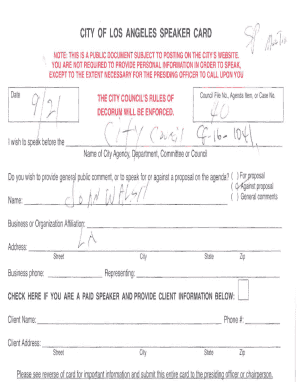 CITY OF LOS ANGELES SPEAKER CARD
NOTE: THIS IS A PUBLIC DOCUMENT SUBJECT TO POSTING ON THE CITY'S WEBSITE.
YOU ARE NOT REQUIRED TO PROVIDE PERSONAL INFORMATION IN ORDER TO SPEAK,
EXCEPT TO THE EXTENT NECESSARY FOR THE PRESIDING OFFICER TO CALL UPON YOU
Date
9/21
THE CITY COUNCIL'S RULES OF
DECORUM WILL BE ENFORCED.
Council File No., Agenda Item, or Case No.
40
I wish to speak before the City Council
16-1041
Name of City Agency, Department, Committee or Council
Do you wish to provide general public comment, or to speak for or against a proposal on the agenda? ( ) For proposal
( ) Against proposal
( ) General comments
Name: JOHN WALSH
Business or Organization Affiliation:
Address: LA
Street City State Zip
Business phone: Representing:
CHECK HERE IF YOU ARE A PAID SPEAKER AND PROVIDE CLIENT INFORMATION BELOW:
Client Name: Phone #:
Client Address:
Street City State Zip
Please see reverse of card for important information and submit this entire card to the presiding officer or chairperson.